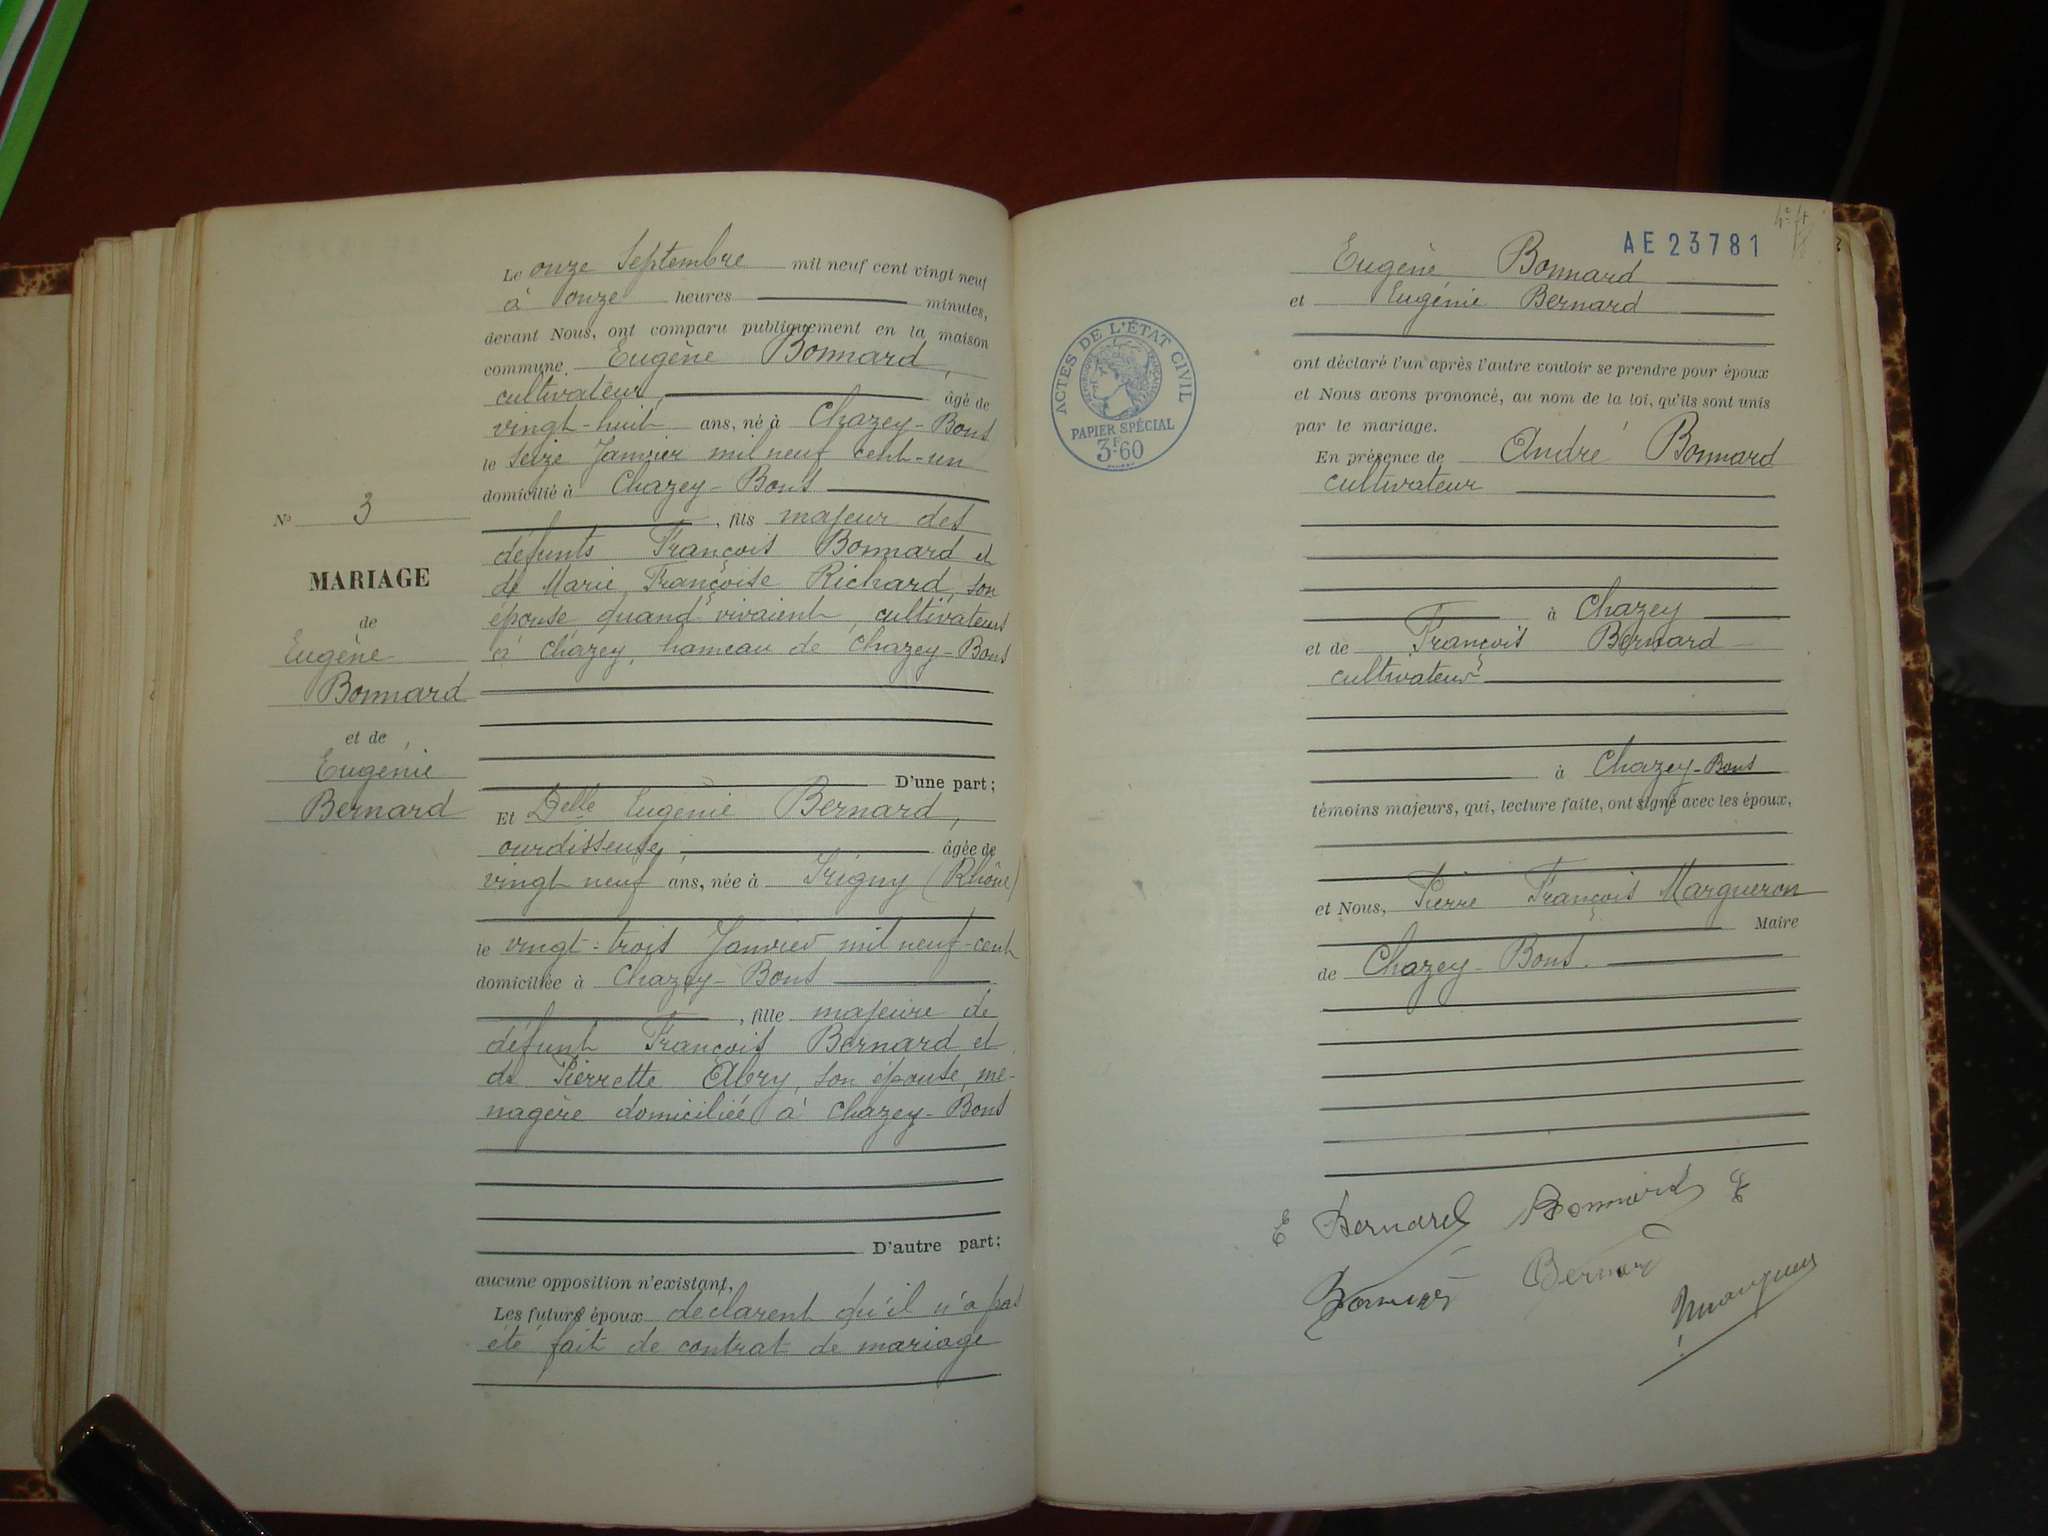 Nº 3
MARIAGE
de
Eugène
Bonnard
et de
Eugénie
Bernard
Le onze Septembre mil neuf cent vingt neuf
à onze heures minutes,
devant Nous, ont comparu publiquement en la maison
commune. Eugène Bonnard,
cultivateur, âgé de
vingt-huit ans, né à Chazey-Bons
le seize Janvier mil neuf cent-un
domicilié à Chazey-Bons
, fils majeur des
défunts François Bonnard et
de Marie Françoise Richard, son
épouse quand vivaient, cultivateurs
à Chazey, hameau de Chazey-Bons
D'une part;
Et Delle Eugénie Bernard,
ourdisseuse, âgée de
vingt neuf ans, née à Irigny (Rhône)
le vingt-trois Janvier mil neuf-cent
domiciliée à Chazey-Bons
, fille majeure de
défunt François Bernard et
de Pierrette Abry, son épouse, mé-
nagère domiciliée à Chazey-Bons
D'autre part;
aucune opposition n'existant,
Les futurs époux déclarent qu'il n'a pas
été fait de contrat de mariage
AE 23781
ACTES DE L'ÉTAT CIVIL
RÉPUBLIQUE FRANÇAISE
PAPIER SPÉCIAL
3F.60
Eugène Bonnard
et Eugénie Bernard
ont déclaré l'un après l'autre vouloir se prendre pour époux
et Nous avons prononcé, au nom de la loi, qu'ils sont unis
par le mariage.
En présence de André Bonnard
cultivateur
à Chazey
et de François Bernard
cultivateur
à Chazey-Bons
témoins majeurs, qui, lecture faite, ont signé avec les époux,
et Nous, Pierre François Margueron
Maire
de Chazey-Bons.
E Bernard Bonnard E
Bonnard Bernard